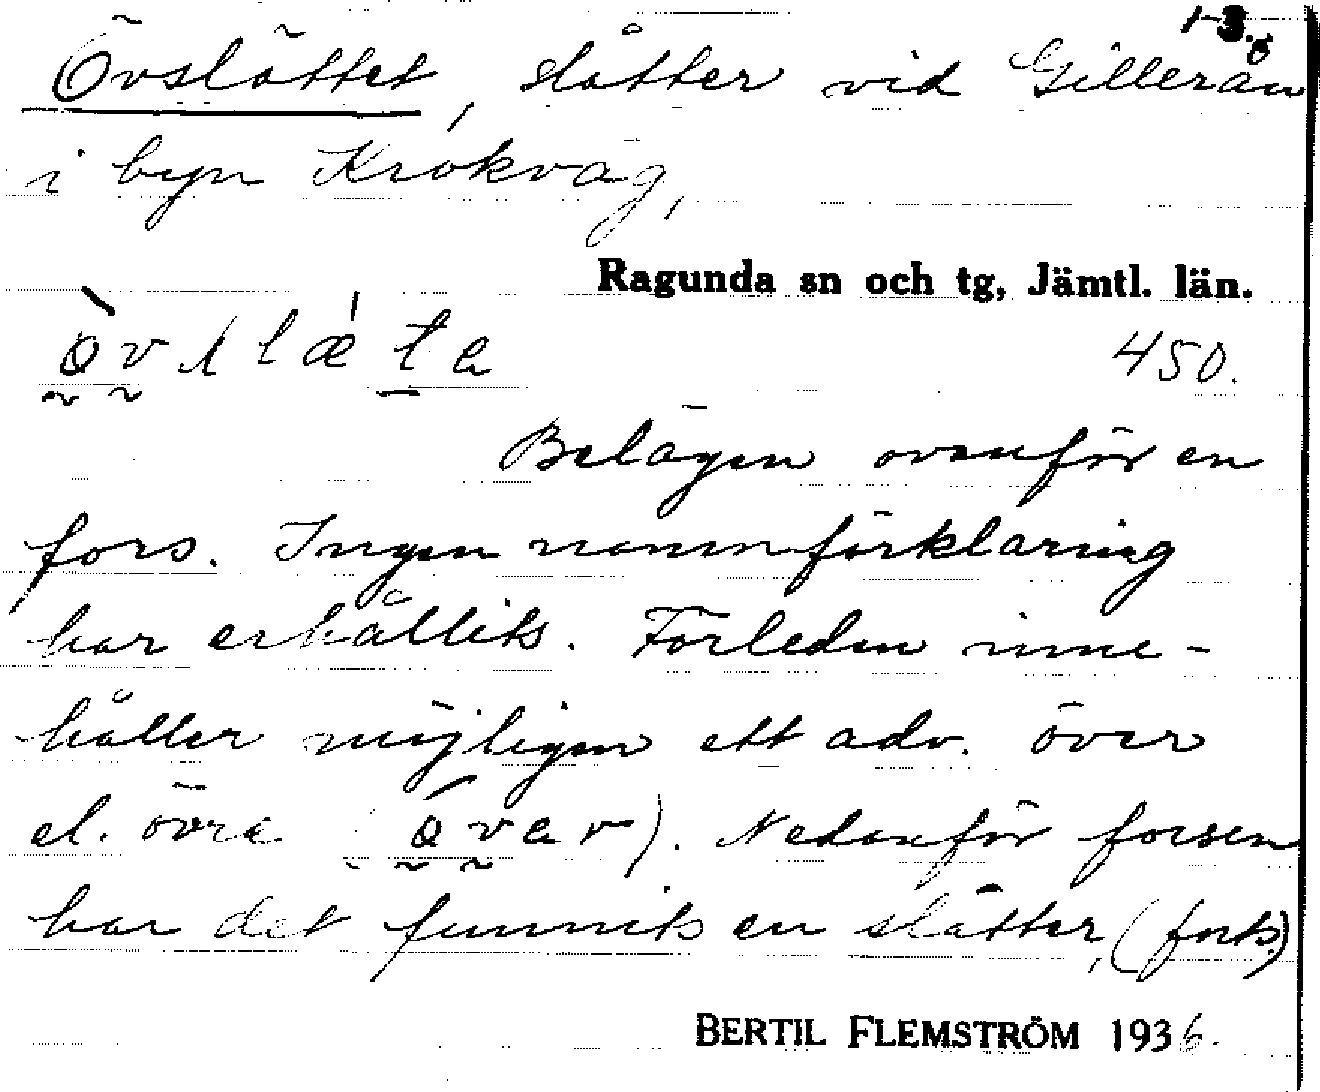 1-3.
Övslättet, slåtter vid Gillerån
i byn Krokvåg,
Ragunda sn och tg, Jämtl. län.
450.
Belägen ovanför en
fors. Ingen namnförklaring
har erhållits. Förleden inne-
håller möjligen ett adv. över
el. övre (òvar). Nedanför forsen
har det funnits en slåtter, (forts.)
BERTIL FLEMSTRÖM 1936.